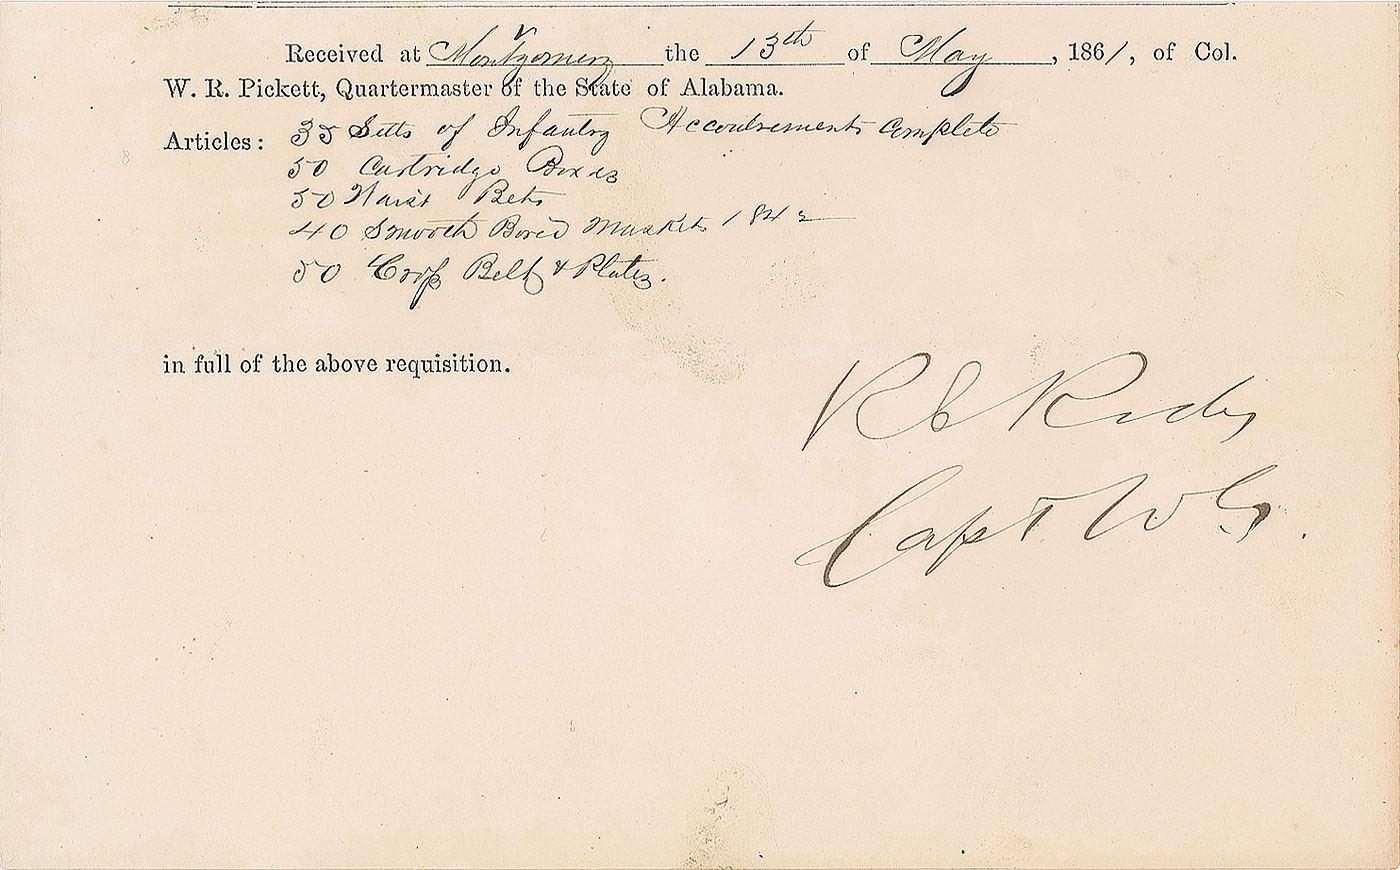 Received at Montgomery the 13th of May, 1861, of Col.
W. R. Pickett, Quartermaster of the State of Alabama.
Articles: 35 Setts of Infantry Accoutrements Complete
50 Cartridge Boxes
50 Waist Belts
40 Smooth Bored Muskets 1842
50 Cross Belts & Plates.
in full of the above requisition.
R E Rodes
Capt W G.